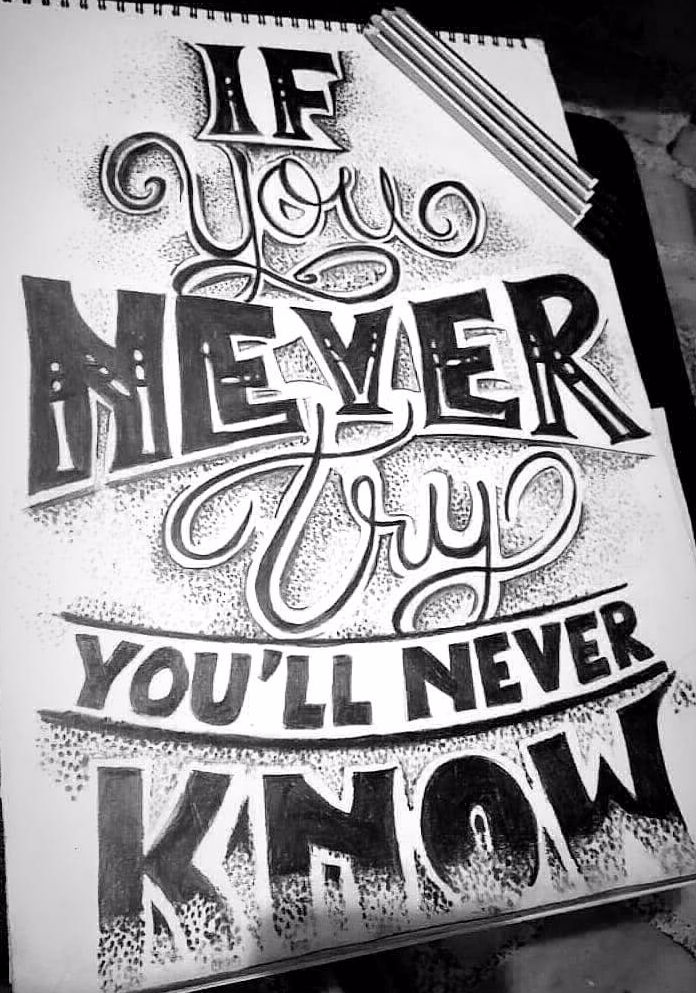 IF
You
NEVER
try
YOU'LL NEVER
KNOW